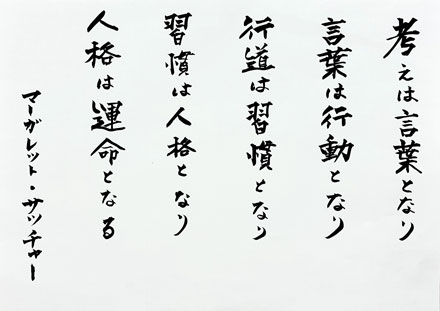 考えは言葉となり
言葉は行動となり
行道は習慣となり
習慣は人格となり
人格は運命となる
マーガレット・サッチャー